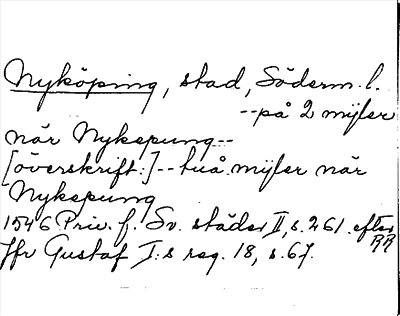 Nyköping, stad, Söderm. l.
--på 2 mijler
när Nykepung--
[överskrift:]--tuå mijler när
Nykepung
1546 Priv. f. Sv. städer II, s. 261. efter
Jfr Gustaf I:s reg. 18, s. 67. RR